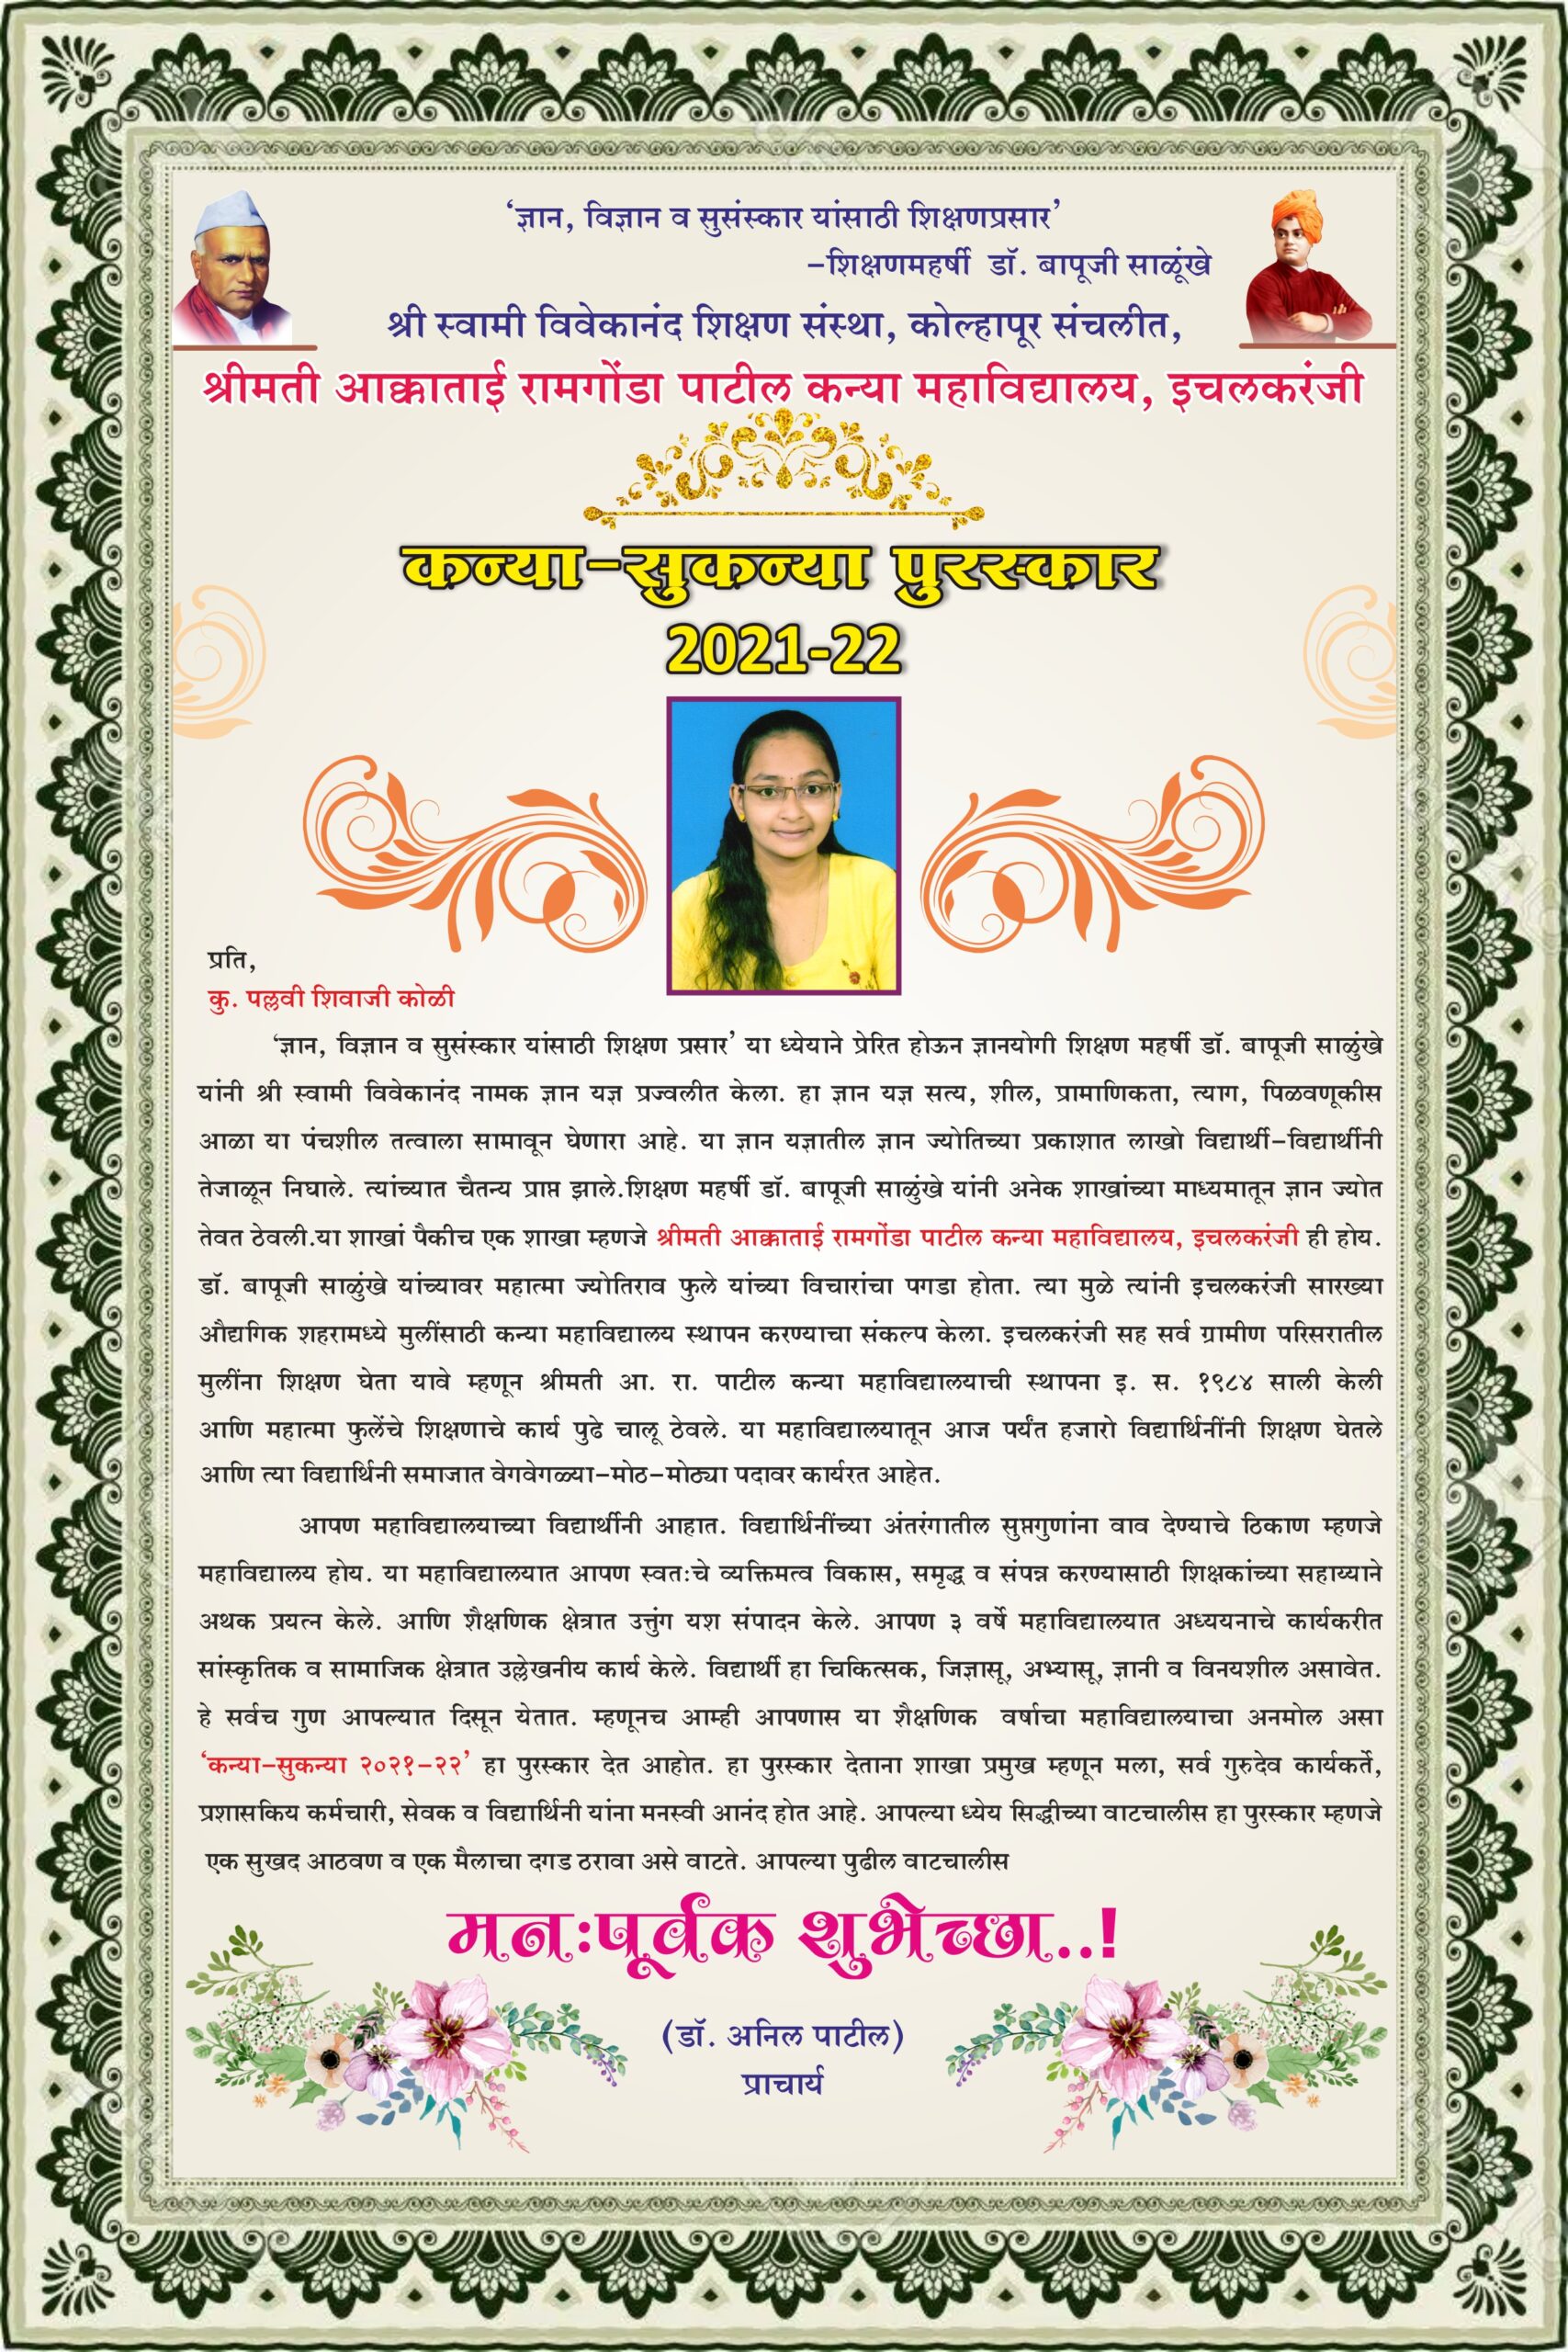 ‘ज्ञान, विज्ञान व सुसंस्कार यांसाठी शिक्षणप्रसार’
–शिक्षणमहर्षी डॉ. बापूजी साळूंखे
श्री स्वामी विवेकानंद शिक्षण संस्था, कोल्हापूर संचलीत,
श्रीमती आक्काताई रामगोंडा पाटील कन्या महाविद्यालय, इचलकरंजी
कन्या-सुकन्या पुरस्कार
2021-22
प्रति,
कु. पल्लवी शिवाजी कोळी
‘ज्ञान, विज्ञान व सुसंस्कार यांसाठी शिक्षण प्रसार’ या ध्येयाने प्रेरित होऊन ज्ञानयोगी शिक्षण महर्षी डॉ. बापूजी साळुंखे
यांनी श्री स्वामी विवेकानंद नामक ज्ञान यज्ञ प्रज्वलीत केला. हा ज्ञान यज्ञ सत्य, शील, प्रामाणिकता, त्याग, पिळवणूकीस
आळा या पंचशील तत्वाला सामावून घेणारा आहे. या ज्ञान यज्ञातील ज्ञान ज्योतिच्या प्रकाशात लाखो विद्यार्थी–विद्यार्थीनी
तेजाळून निघाले. त्यांच्यात चैतन्य प्राप्त झाले.शिक्षण महर्षी डॉ. बापूजी साळुंखे यांनी अनेक शाखांच्या माध्यमातून ज्ञान ज्योत
तेवत ठेवली.या शाखां पैकीच एक शाखा म्हणजे श्रीमती आक्काताई रामगोंडा पाटील कन्या महाविद्यालय, इचलकरंजी ही होय.
डॉ. बापूजी साळुंखे यांच्यावर महात्मा ज्योतिराव फुले यांच्या विचारांचा पगडा होता. त्या मुळे त्यांनी इचलकरंजी सारख्या
औद्यगिक शहरामध्ये मुलींसाठी कन्या महाविद्यालय स्थापन करण्याचा संकल्प केला. इचलकरंजी सह सर्व ग्रामीण परिसरातील
मुलींना शिक्षण घेता यावे म्हणून श्रीमती आ. रा. पाटील कन्या महाविद्यालयाची स्थापना इ. स. १९८४ साली केली
आणि महात्मा फुलेंचे शिक्षणाचे कार्य पुढे चालू ठेवले. या महाविद्यालयातून आज पर्यंत हजारो विद्यार्थिनींनी शिक्षण घेतले
आणि त्या विद्यार्थिनी समाजात वेगवेगळ्या–मोठ–मोठ्या पदावर कार्यरत आहेत.
आपण महाविद्यालयाच्या विद्यार्थीनी आहात. विद्यार्थिनींच्या अंतरंगातील सुप्तगुणांना वाव देण्याचे ठिकाण म्हणजे
महाविद्यालय होय. या महाविद्यालयात आपण स्वतःचे व्यक्तिमत्व विकास, समृद्ध व संपन्न करण्यासाठी शिक्षकांच्या सहाय्याने
अथक प्रयत्न केले. आणि शैक्षणिक क्षेत्रात उत्तुंग यश संपादन केले. आपण ३ वर्षे महाविद्यालयात अध्ययनाचे कार्यकरीत
सांस्कृतिक व सामाजिक क्षेत्रात उल्लेखनीय कार्य केले. विद्यार्थी हा चिकित्सक, जिज्ञासू, अभ्यासू, ज्ञानी व विनयशील असावेत.
हे सर्वच गुण आपल्यात दिसून येतात. म्हणूनच आम्ही आपणास या शैक्षणिक वर्षाचा महाविद्यालयाचा अनमोल असा
‘कन्या–सुकन्या २०२१–२२’ हा पुरस्कार देत आहोत. हा पुरस्कार देताना शाखा प्रमुख म्हणून मला, सर्व गुरुदेव कार्यकर्ते,
प्रशासकिय कर्मचारी, सेवक व विद्यार्थिनी यांना मनस्वी आनंद होत आहे. आपल्या ध्येय सिद्धीच्या वाटचालीस हा पुरस्कार म्हणजे
एक सुखद आठवण व एक मैलाचा दगड ठरावा असे वाटते. आपल्या पुढील वाटचालीस
मनःपूर्वक शुभेच्छा..!
(डॉ. अनिल पाटील)
प्राचार्य